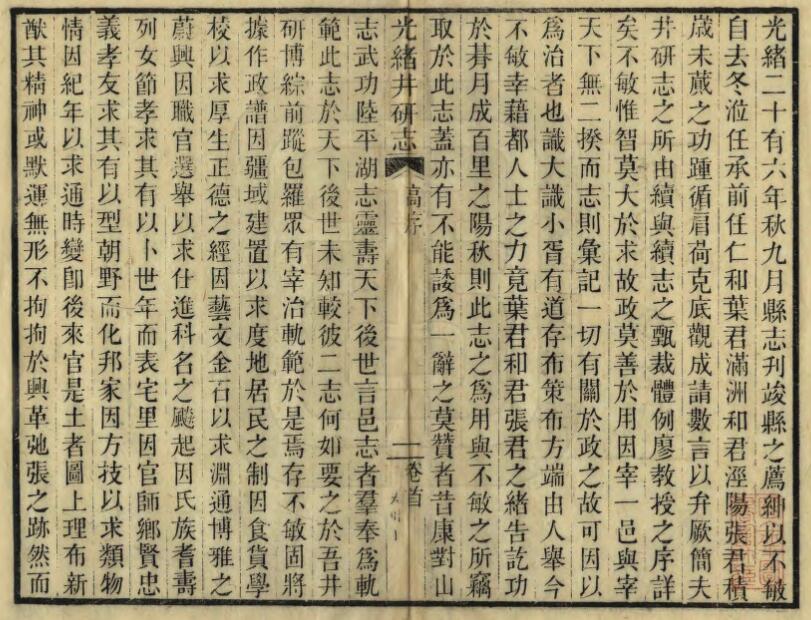 光緒二十有六年秋九月縣志刊竣縣之薦紳以不敏
自去冬涖任承前任仁和葉君滿洲和君涇陽張君積
歲未蕆之功踵循肩荷克底觀成請數言以弁厥簡夫
井研志之所由續與續志之甄裁體例廖教授之序詳
矣不敏惟智莫大於求故政莫善於用因宰一邑與宰
天下無二揆而志則彙記一切有關於政之故可因以
爲治者也識大識小胥有道存布策布方端由人舉今
不敏幸藉都人士之力竟葉君和君張君之緒告訖功
於朞月成百里之陽秋則此志之爲用與不敏之所竊
取於此志蓋亦有不能諉爲一辭之莫贊者昔康對山
光緒井研志 稿序 一 卷首
志武功陸平湖志靈壽天下後世言邑志者羣奉爲軌
範此志於天下後世未知較彼二志何如要之於吾井
研博綜前蹤包羅眾有宰治軌範於是焉存不敏固將
據作政譜因疆域建置以求度地居民之制因食貨學
校以求厚生正德之經因藝文金石以求淵通博雅之
蔚興因職官選舉以求仕進科名之飈起因氏族耆壽
列女節孝求其有以卜世年而表宅里因官師鄉賢忠
義孝友求其有以型朝野而化邦家因方技以求類物
情因紀年以求通時變卽後來官是土者圖上理布新
猷其精神或默運無形不拘拘於興革弛張之跡然而